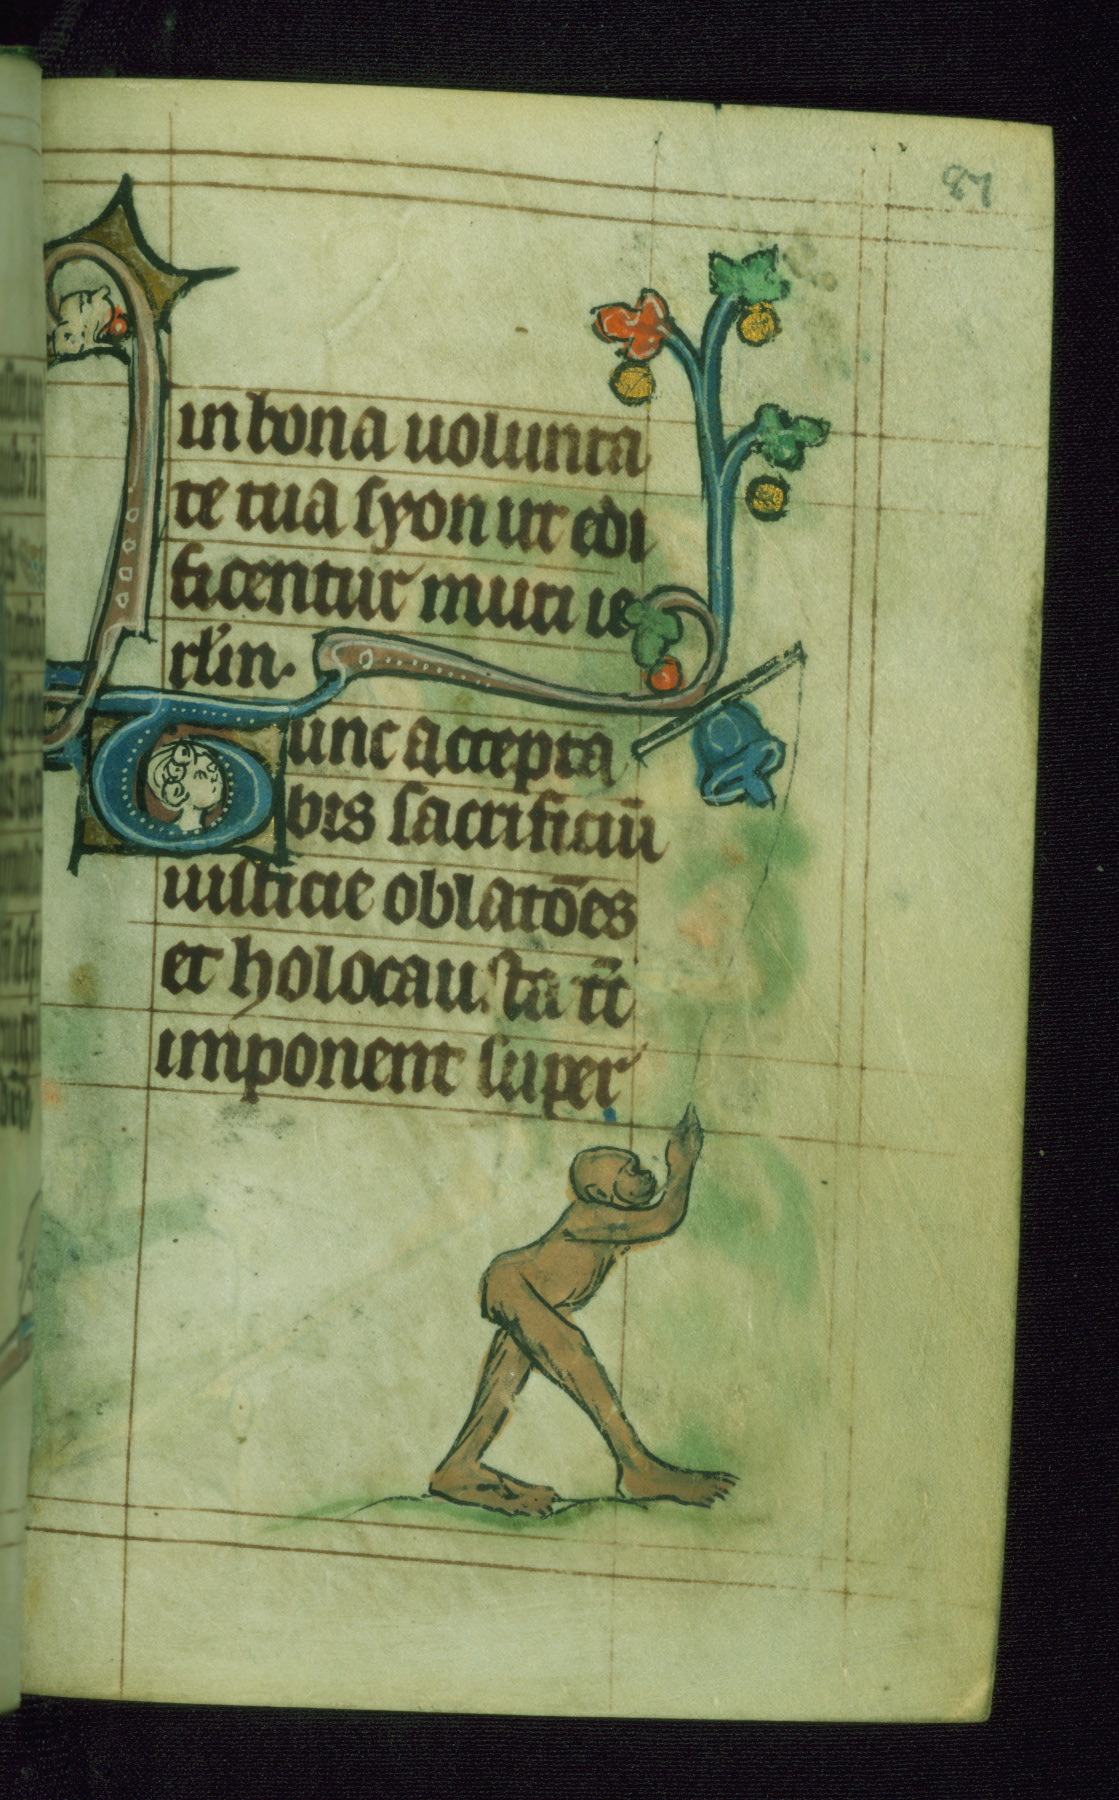 87
in bona uolunta
te tua syon ut edi
ficentur muri ie
rl'm.
Tunc accepta
bis sacrificiū
iusticie oblatōes
et holocausta tc̄
imponent super